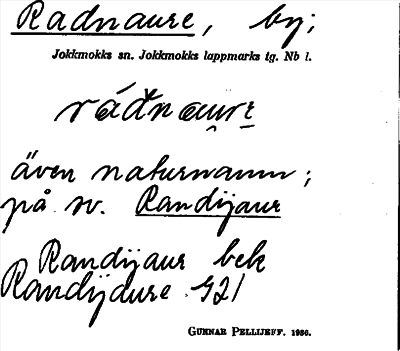 Radnaure, by;
Jokkmokks sn. Jokkmokks lappmarks tg. Nb l.
ráđnau̯rɛ
även naturnamn;
på sv. Randijaur
Randijaur bek
Randijaure G21
GUNNAR PELLIJEFF. 1986.